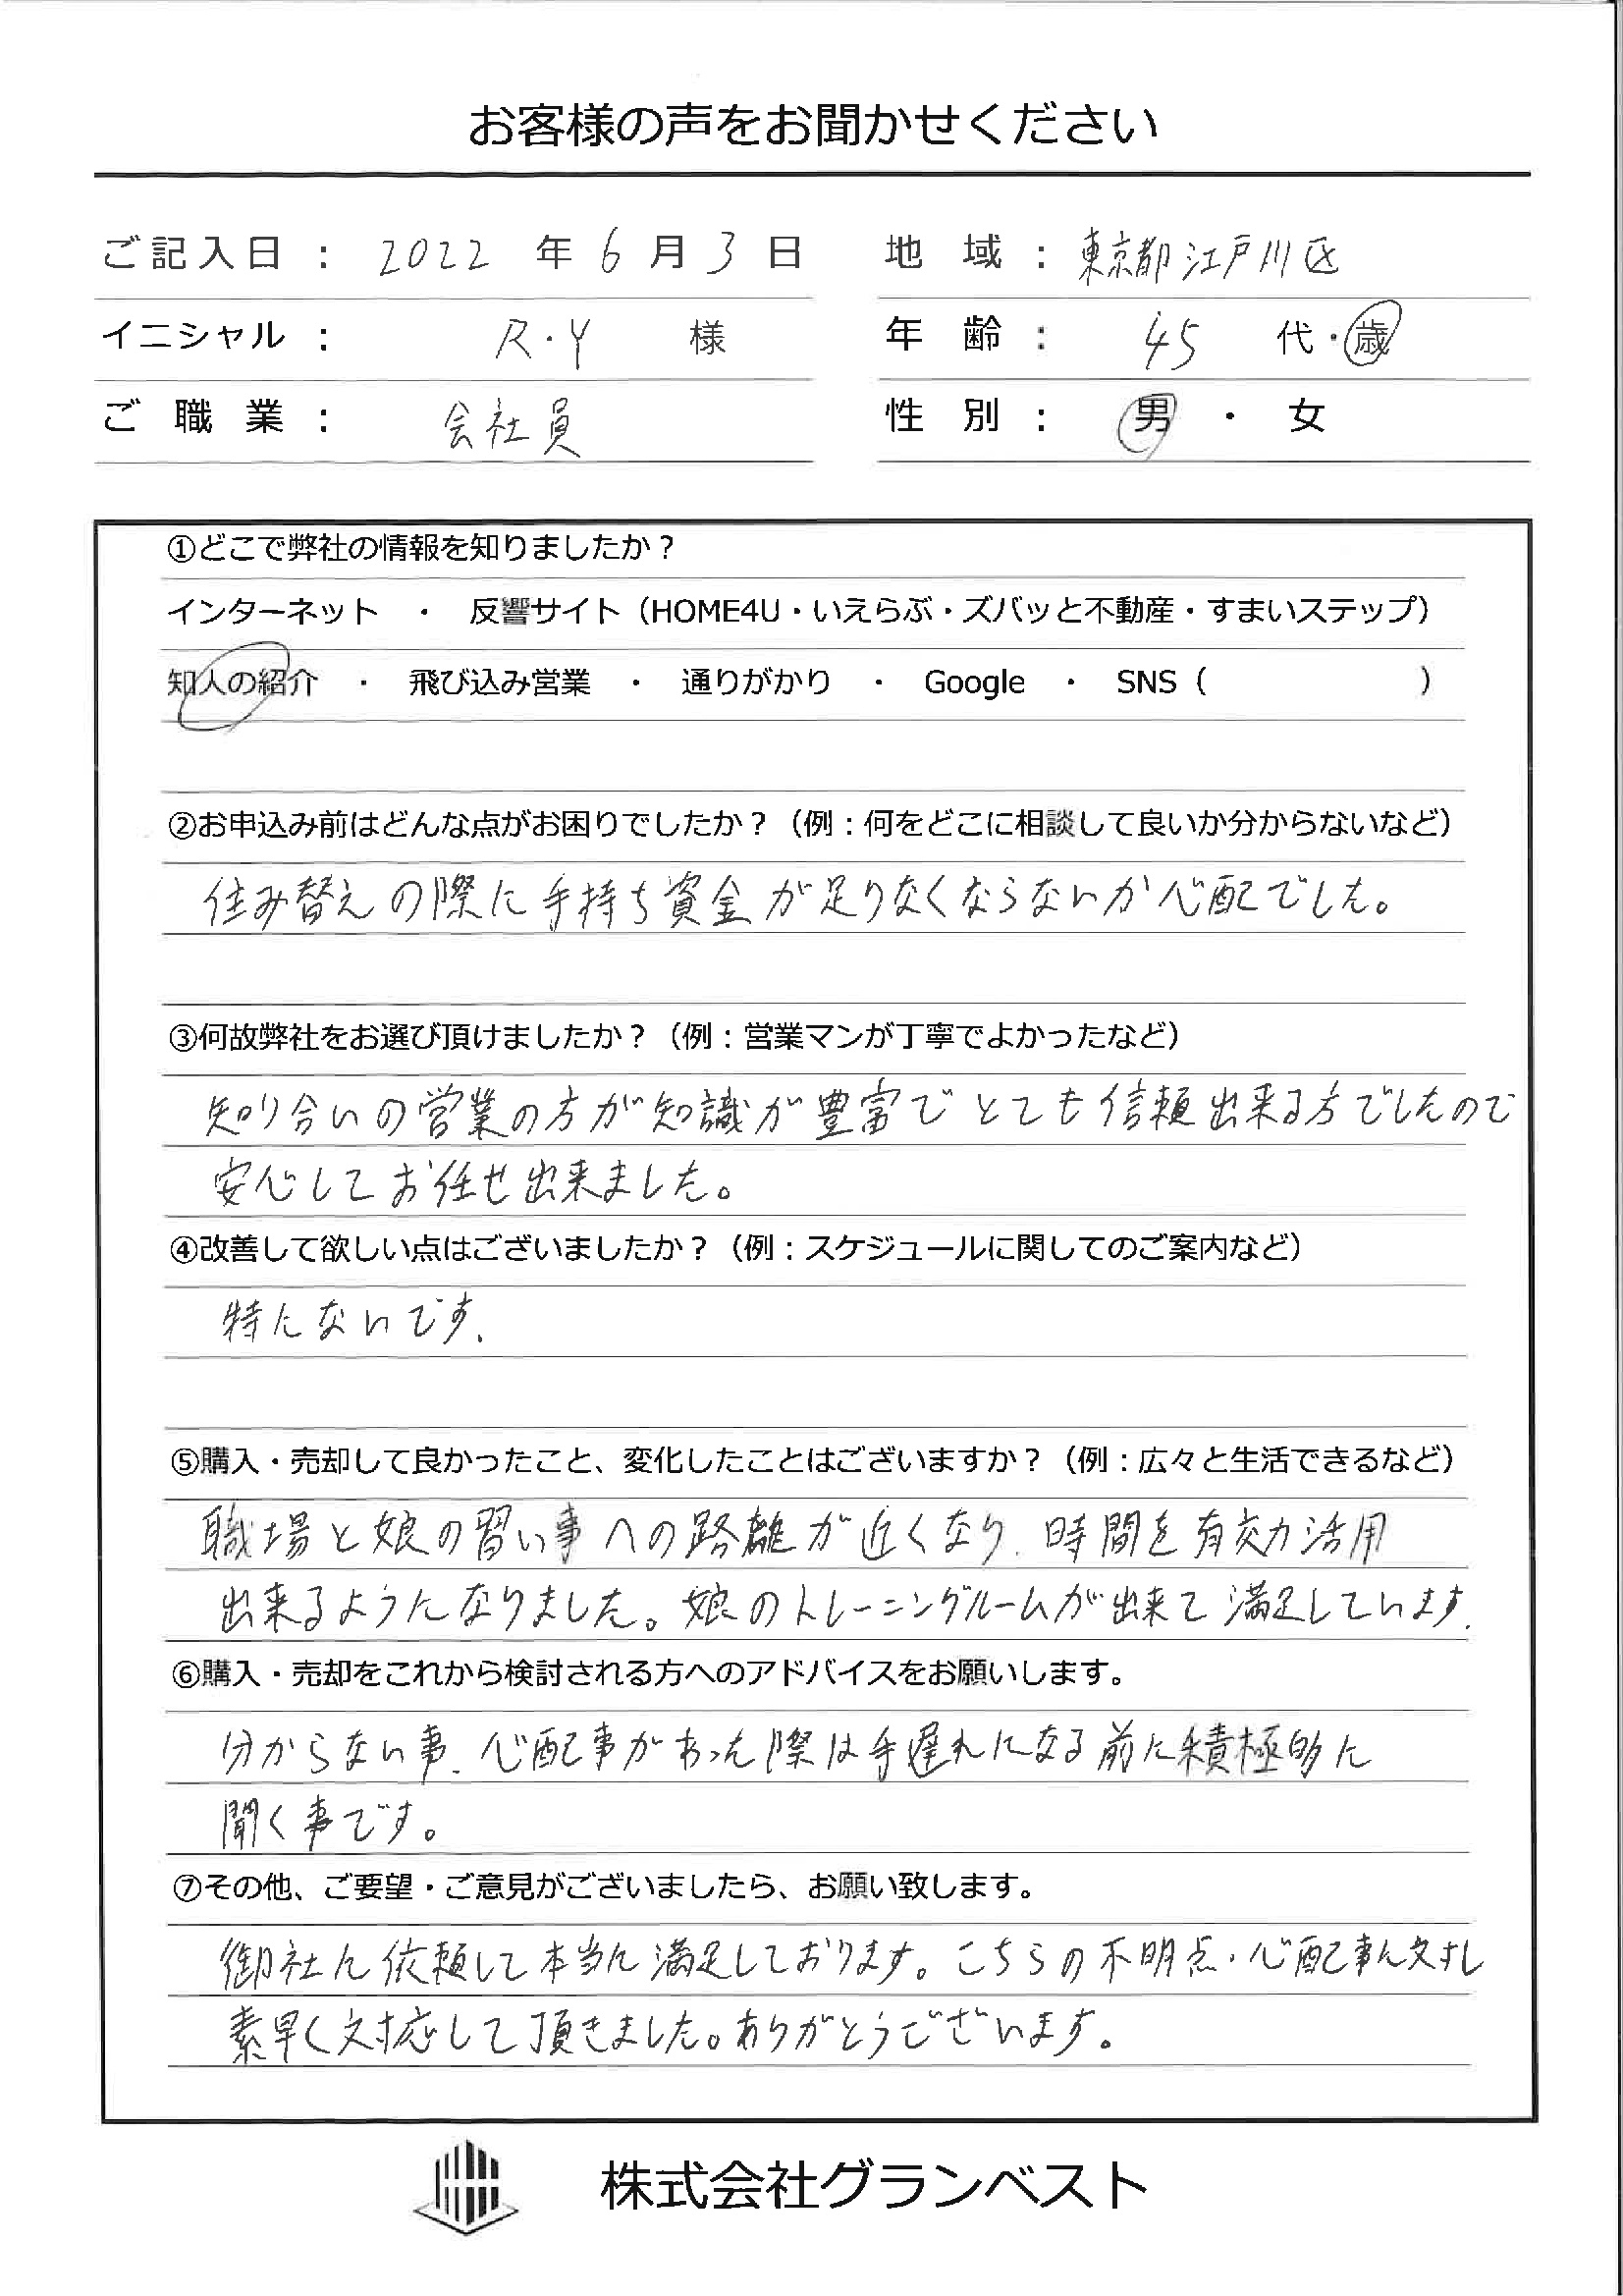 お客様の声をお聞かせください
ご記入日 : 2022 年 6 月 3 日 地域 : 東京都江戸川区
イニシャル : R・Y 様 年齢 : 45 代・歳
ご職業 : 会社員 性別 : 男 ・ 女
①どこで弊社の情報を知りましたか？
インターネット ・ 反響サイト（HOME4U・いえらぶ・ズバッと不動産・すまいステップ）
知人の紹介 ・ 飛び込み営業 ・ 通りがかり ・ Google ・ SNS（ ）
②お申込み前はどんな点がお困りでしたか？（例：何をどこに相談して良いか分からないなど）
住み替えの際に手持ち資金が足りなくならないか心配でした。
③何故弊社をお選び頂けましたか？（例：営業マンが丁寧でよかったなど）
知り合いの営業の方が知識が豊富でとても信頼出来る方でしたので
安心してお任せ出来ました。
④改善して欲しい点はございましたか？（例：スケジュールに関してのご案内など）
特にないです、
⑤購入・売却して良かったこと、変化したことはございますか？（例：広々と生活できるなど）
職場と娘の習い事への路離が近くなり、時間を有効活用
出来るようになりました。娘のトレーニングルームが出来て満足しています、
⑥購入・売却をこれから検討される方へのアドバイスをお願いします。
分からない事、心配事があった際は手遅れになる前に積極的に
聞く事です。
⑦その他、ご要望・ご意見がございましたら、お願い致します。
御社に依頼して本当に満足しております。こちらの不明点・心配事に対し
素早く対応して頂きました。ありがとうございます。
株式会社グランベスト